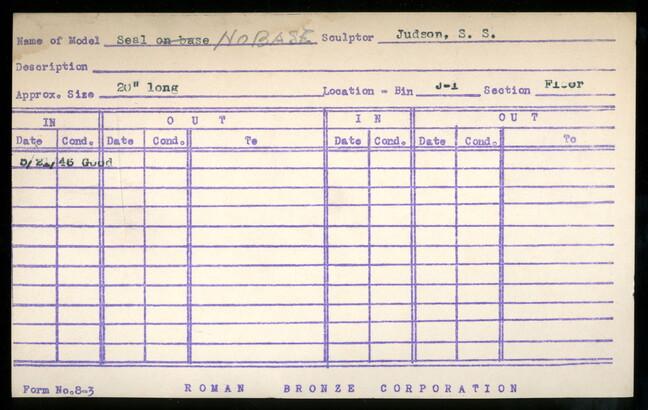 Name of Model Seal on base NO BASE Sculptor Judson, S. S.
Description
Approx. Size 20" long Location - Bin J-1 Section Floor
IN OUT IN OUT
Date Cond. Date Cond. To Date Cond. Date Cond. To
46 Good
Form No.8-3 ROMAN BRONZE CORPORATION